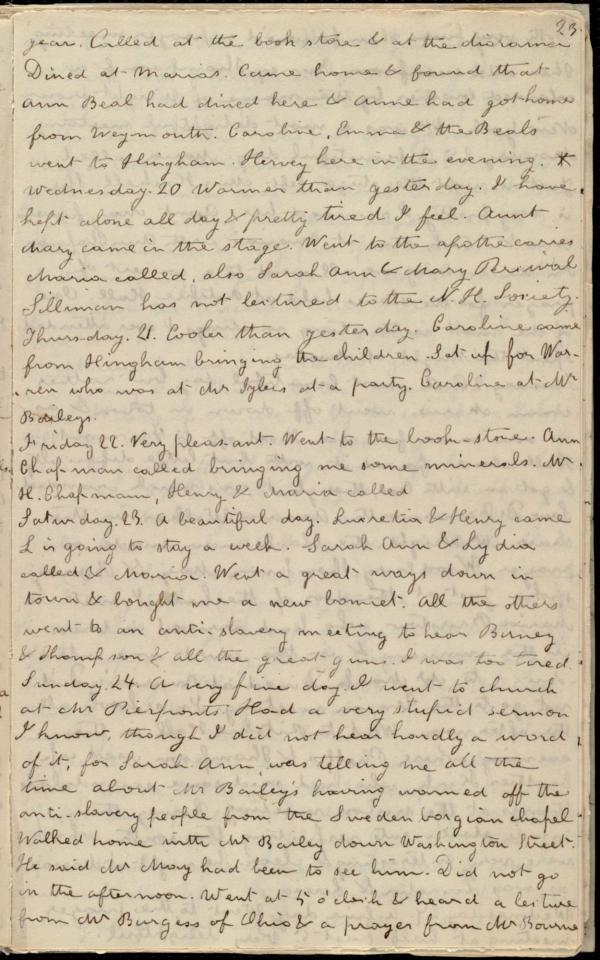 23.
year. Called at the book store & at the diorama
Dined at Marias. Came home & found that
Ann Beal had dined here & Anne had got home
from Weymouth. Caroline, Emma & the Beals
went to Hingham. Hervey here in the evening. *
Wednesday. 20 Warmer than yesterday. I have
kept alone all day & pretty tired I feel. Aunt
Mary came in the stage. Went to the apothecaries
Maria called, also Sarah Ann & Mary
Silliman has not lectured to the N. H. Society.
Thursday. 21. Cooler than yesterday. Caroline came
from Hingham bringing the children. Sat up for War-
ren who was at Mr at a party. Caroline at Mr
Baileys.
Friday 22. Very pleasant. Went to the book-store. Ann
Chapman called bringing me some minerals. Mr.
H. Chapman, Henry & Maria called
Saturday. 23. A beautiful day. Lucretia & Henry came
L is going to stay a week. Sarah Ann & Lydia
called & Maria. Went a great ways down in
town & bought me a new bonnet. All the others
went to an anti-slavery meeting to hear Birney
& Thompson & all the great guns. I was too tired.
Sunday. 24. A very fine day. I went to church
at Mr Pierponts Had a very stupid sermon
I know, though I did not hear hardly a word
of it, for Sarah Ann, was telling me all the
time about Mr Bailey's having warned off the
anti-slavery people from the Swedenborgian chapel
Walked home with Mr Bailey down Washington Street.
He said Mr May had been to see him. Did not go
in the afternoon. Went at 5 o'clock & heard a lecture
from Mr Burgess of Ohio & a prayer from Mr Bourne